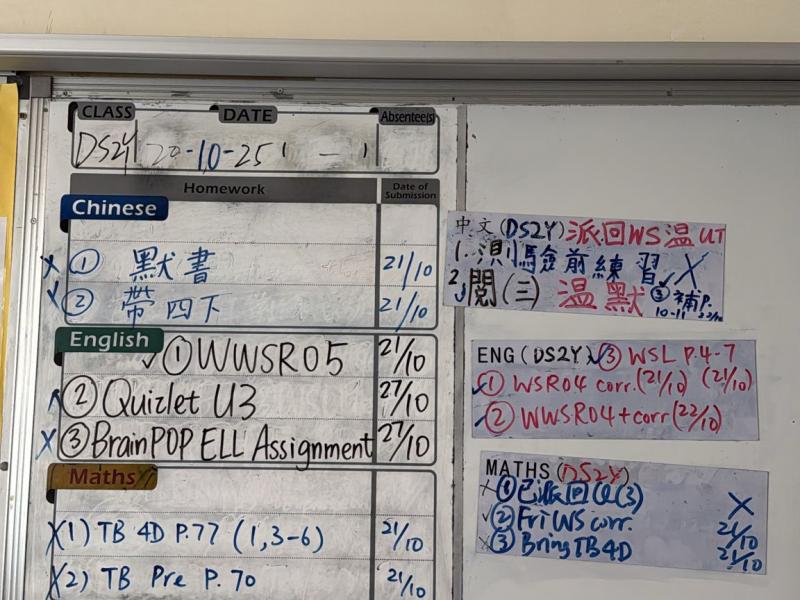 CLASS DATE Absentee(s)
DS2Y 20-10-25
Homework Date of Submission
Chinese
① 默書 21/10
② 帶四下 21/10
English
✓ ① WWSR05 21/10
② Quizlet U3 27/10
X ③ BrainPOP ELL Assignment 27/10
Maths
X 1) TB 4D P.77 (1,3-6) 21/10
X 2) TB Pre P. 70 21/10
中文 (DS2Y) 派回WS温UT
1. 測驗前練習 X
2. 閱(三) 温默 ③ 補P.
10-11
ENG (DS2Y) ✓ ③ WSL P.4-7
✓ ① WSR04 corr. (21/10) (21/10)
✓ ② WWSR04+corr (22/10)
MATHS (DS2Y)
① 已派回Q(3) X
✓ ② Fri WS corr. 21/10
③ Bring TB4D 21/10